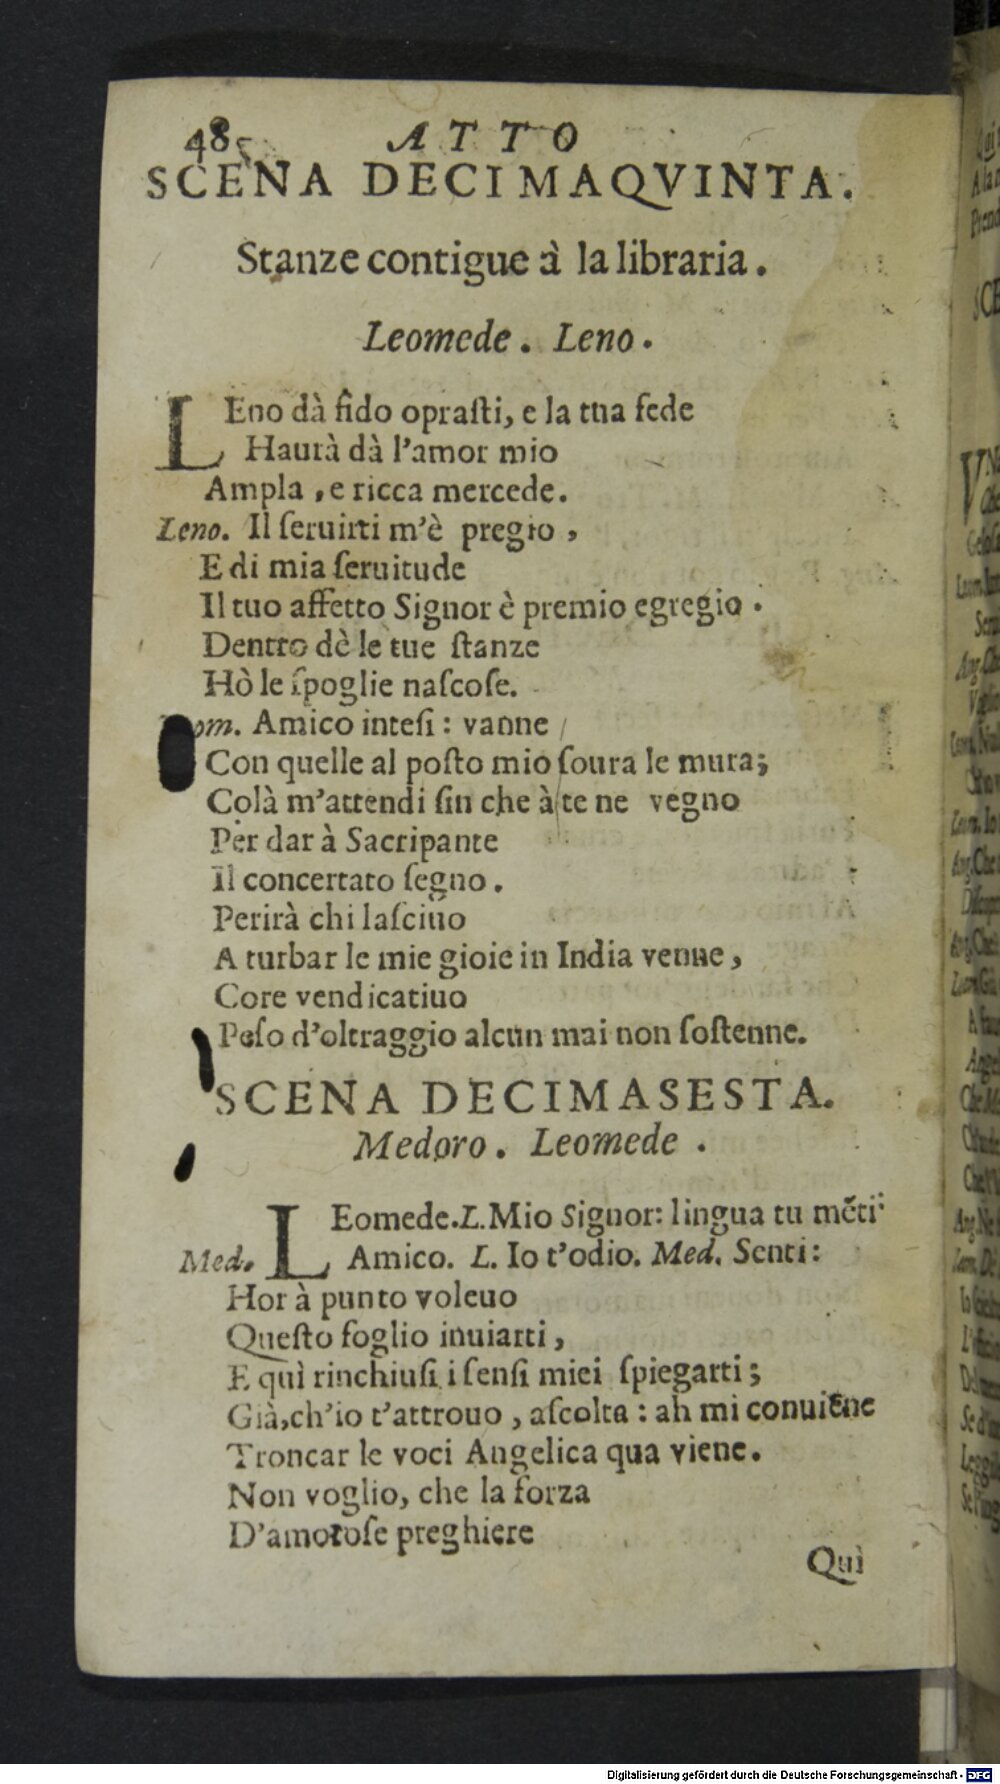 48 ATTO
SCENA DECIMAQVINTA.
Stanze contigue à la libraria.
Leomede. Leno.
LEno dà fido opraſti, e la tua fede
Haurà dà l'amor mio
Ampla, e ricca mercede.
Leno. Il ſeruirti m'è pregio,
E di mia ſeruitude
Il tuo affetto Signor è premio egregio.
Dentro dè le tue ſtanze
Hò le ſpoglie naſcoſe.
om. Amico inteſi: vanne
Con quelle al poſto mio ſoura le mura;
Colà m'attendi ſin che à te ne vegno
Per dar à Sacripante
Il concertato ſegno.
Perirà chi laſciuo
A turbar le mie gioie in India venne,
Core vendicatiuo
Peſo d'oltraggio alcun mai non ſoſtenne.
SCENA DECIMASESTA.
Medoro. Leomede.
LEomede. L. Mio Signor: lingua tu mẽti
Med. Amico. L. Io t'odio. Med. Senti:
Hor à punto voleuo
Queſto foglio inuiarti,
E quì rinchiuſi i ſenſi miei ſpiegarti;
Già, ch'io t'attrouo, aſcolta: ah mi conuiene
Troncar le voci Angelica qua viene.
Non voglio, che la forza
D'amoroſe preghiere
Quì
Digitalisierung gefördert durch die Deutsche Forschungsgemeinschaft - DFG